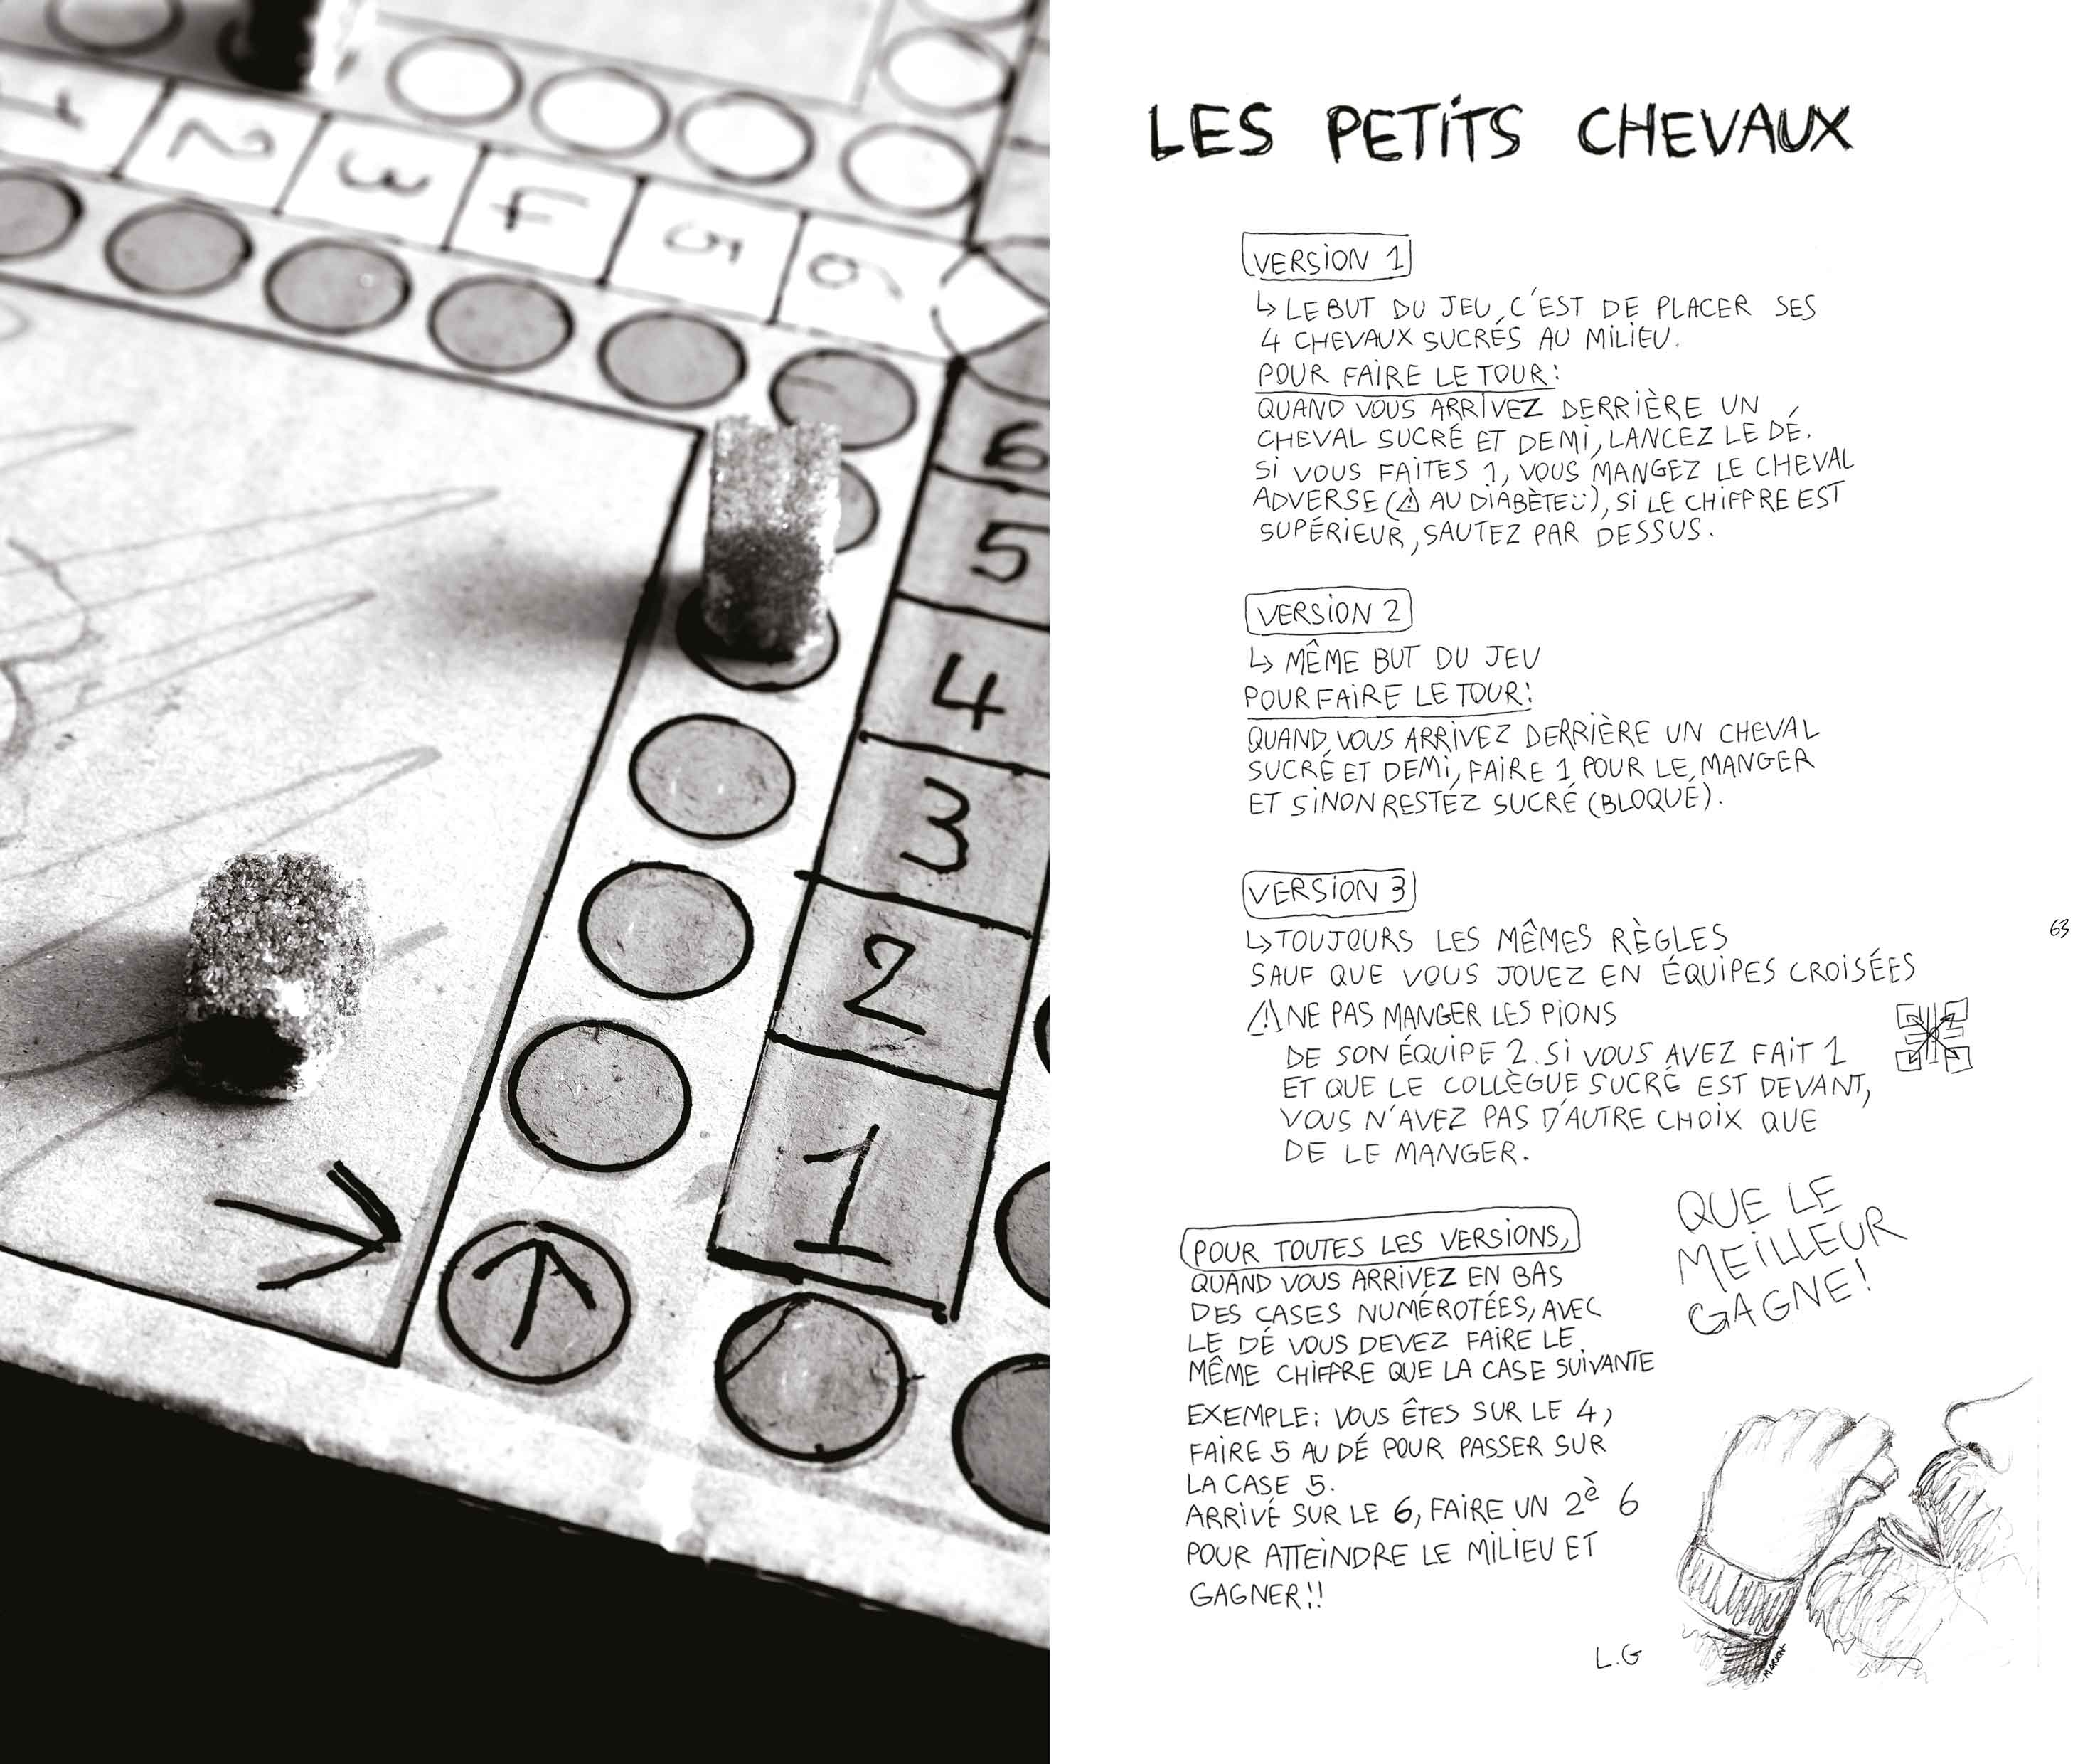 1
2
3
4
5
6
6
5
4
3
2
1
LES PETITS CHEVAUX
VERSION 1
↳ LE BUT DU JEU, C'EST DE PLACER SES
4 CHEVAUX SUCRÉS AU MILIEU.
POUR FAIRE LE TOUR:
QUAND VOUS ARRIVEZ DERRIÈRE UN
CHEVAL SUCRÉ ET DEMI, LANCEZ LE DÉ.
SI VOUS FAITES 1, VOUS MANGEZ LE CHEVAL
ADVERSE (⚠ AU DIABÈTE ü), SI LE CHIFFRE EST
SUPÉRIEUR, SAUTEZ PAR DESSUS.
VERSION 2
↳ MÊME BUT DU JEU
POUR FAIRE LE TOUR:
QUAND VOUS ARRIVEZ DERRIÈRE UN CHEVAL
SUCRÉ ET DEMI, FAIRE 1 POUR LE MANGER
ET SINON RESTÉZ SUCRÉ (BLOQUÉ).
VERSION 3
↳ TOUJOURS LES MÊMES RÈGLES
SAUF QUE VOUS JOUEZ EN ÉQUIPES CROISÉES
⚠ NE PAS MANGER LES PIONS
DE SON ÉQUIPE 2. SI VOUS AVEZ FAIT 1
ET QUE LE COLLÈGUE SUCRÉ EST DEVANT,
VOUS N'AVEZ PAS D'AUTRE CHOIX QUE
DE LE MANGER.
63
POUR TOUTES LES VERSIONS,
QUAND VOUS ARRIVEZ EN BAS
DES CASES NUMÉROTÉES, AVEC
LE DÉ VOUS DEVEZ FAIRE LE
MÊME CHIFFRE QUE LA CASE SUIVANTE
EXEMPLE: VOUS ÊTES SUR LE 4,
FAIRE 5 AU DÉ POUR PASSER SUR
LA CASE 5.
ARRIVÉ SUR LE 6, FAIRE UN 2È 6
POUR ATTEINDRE LE MILIEU ET
GAGNER!!
QUE LE
MEILLEUR
GAGNE!
L.G